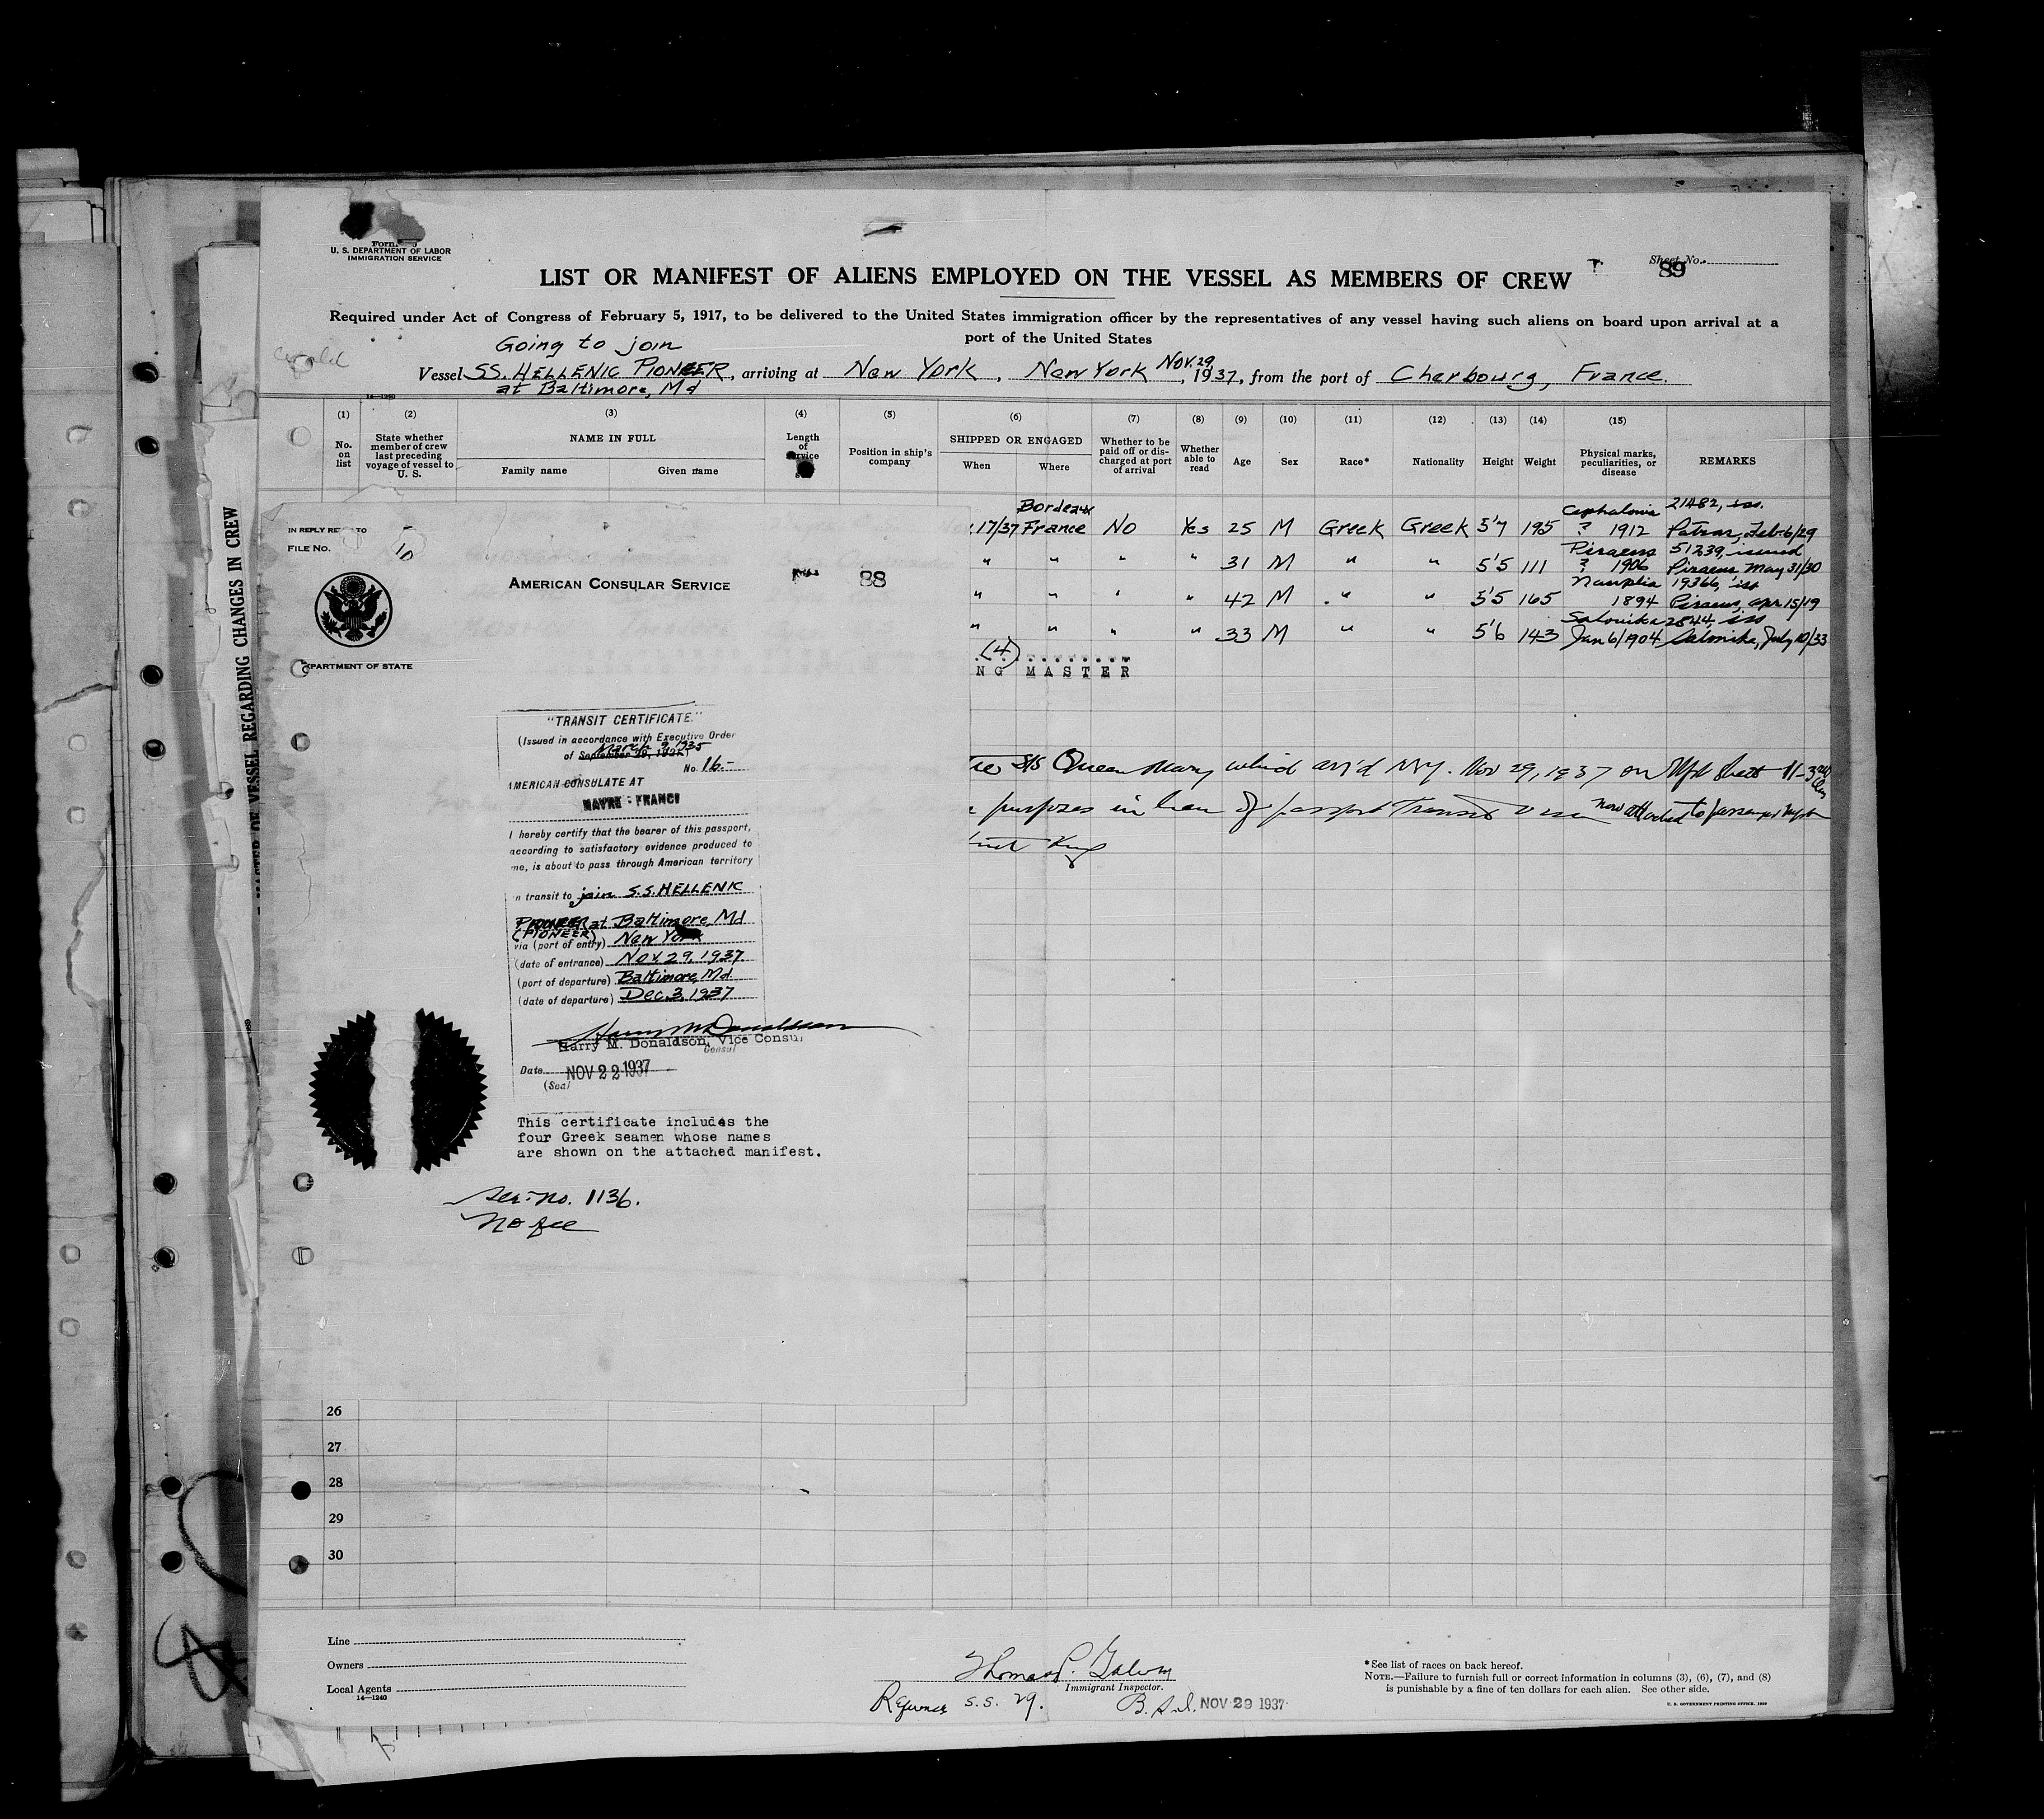 U. S. DEPARTMENT OF LABOR
IMMIGRATION SERVICE
Sheet No.
89
LIST OR MANIFEST OF ALIENS EMPLOYED ON THE VESSEL AS MEMBERS OF CREW
Required under Act of Congress of February 5, 1917, to be delivered to the United States immigration officer by the representatives of any vessel having such aliens on board upon arrival at a
port of the United States
Going to join
Vessel SS. HELLENIC PIONEER, arriving at New York, New York Nov. 29, 1937, from the port of Cherbourg, France.
at Baltimore, Md
14—1240
(1) (2) (3) (4) (5) (6) (7) (8) (9) (10) (11) (12) (13) (14) (15)
No. on list
State whether member of crew last preceding voyage of vessel to U. S.
NAME IN FULL
Family name Given name
Length of service
Position in ship's company
SHIPPED OR ENGAGED
When Where
Whether to be paid off or discharged at port of arrival
Whether able to read
Age
Sex
Race*
Nationality
Height
Weight
Physical marks, peculiarities, or disease
REMARKS
Bordeaux Cephalonia 21482, iss.
17/37 France No Yes 25 M Greek Greek 5'7 195 ? 1912 Patras, Feb. 6/29
Piraeus 51239, issued
" " " " 31 M " " 5'5 111 ? 1906 Piraeus May 31/30
Nauplia 19366, iss
" " " " 42 M " " 5'5 165 1894 Piraeus, Apr. 15/19
Salonika 2844, iss
" " " " 33 M " " 5'6 143 Jan 6/1904 Salonika, July 10/33
(4)
NG MASTER
S/S Queen Mary which arr'd N.Y. Nov 29, 1937 on
purposes in lieu of passport
IN REPLY REFER TO
FILE NO.
10
AMERICAN CONSULAR SERVICE
88
DEPARTMENT OF STATE
"TRANSIT CERTIFICATE"
(Issued in accordance with Executive Order
March 9, 1935
of September
No. 16.-
AMERICAN CONSULATE AT
HAVRE - FRANCE
I hereby certify that the bearer of this passport,
according to satisfactory evidence produced to
me, is about to pass through American territory
in transit to join S.S. HELLENIC
PIONEER at Baltimore, Md
(PIONEER)
via (port of entry) New York
(date of entrance) Nov. 29, 1937
(port of departure) Baltimore, Md.
(date of departure) Dec. 3, 1937
Harry M. Donaldson
Harry M. Donaldson, Vice Consul
Consul
Date NOV 22 1937
(Seal)
This certificate includes the
four Greek seamen whose names
are shown on the attached manifest.
Ser. no. 1136.
No fee
MASTER OF VESSEL REGARDING CHANGES IN CREW
26
27
28
29
30
Line
Owners
Local Agents
14—1240
Immigrant Inspector.
S.S. 29.
NOV 29 1937
*See list of races on back hereof.
NOTE.—Failure to furnish full or correct information in columns (3), (6), (7), and (8)
is punishable by a fine of ten dollars for each alien. See other side.